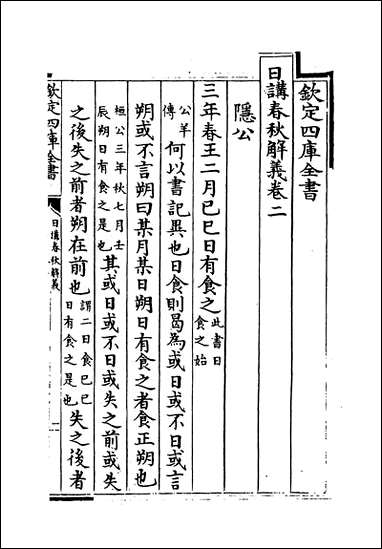 欽定四庫全書
日講春秋解義卷二
隱公
三年春王二月己巳日有食之此書日食之始
公羊傳何以書記異也日食則曷為或日或不日或言
朔或不言朔曰某月某日朔日有食之者食正朔也
桓公三年秋七月壬辰朔日有食之是也其或日或不日或失之前或失
之後失之前者朔在前也謂二日食己巳日有食之是也失之後者
欽定四庫全書
日講春秋解義